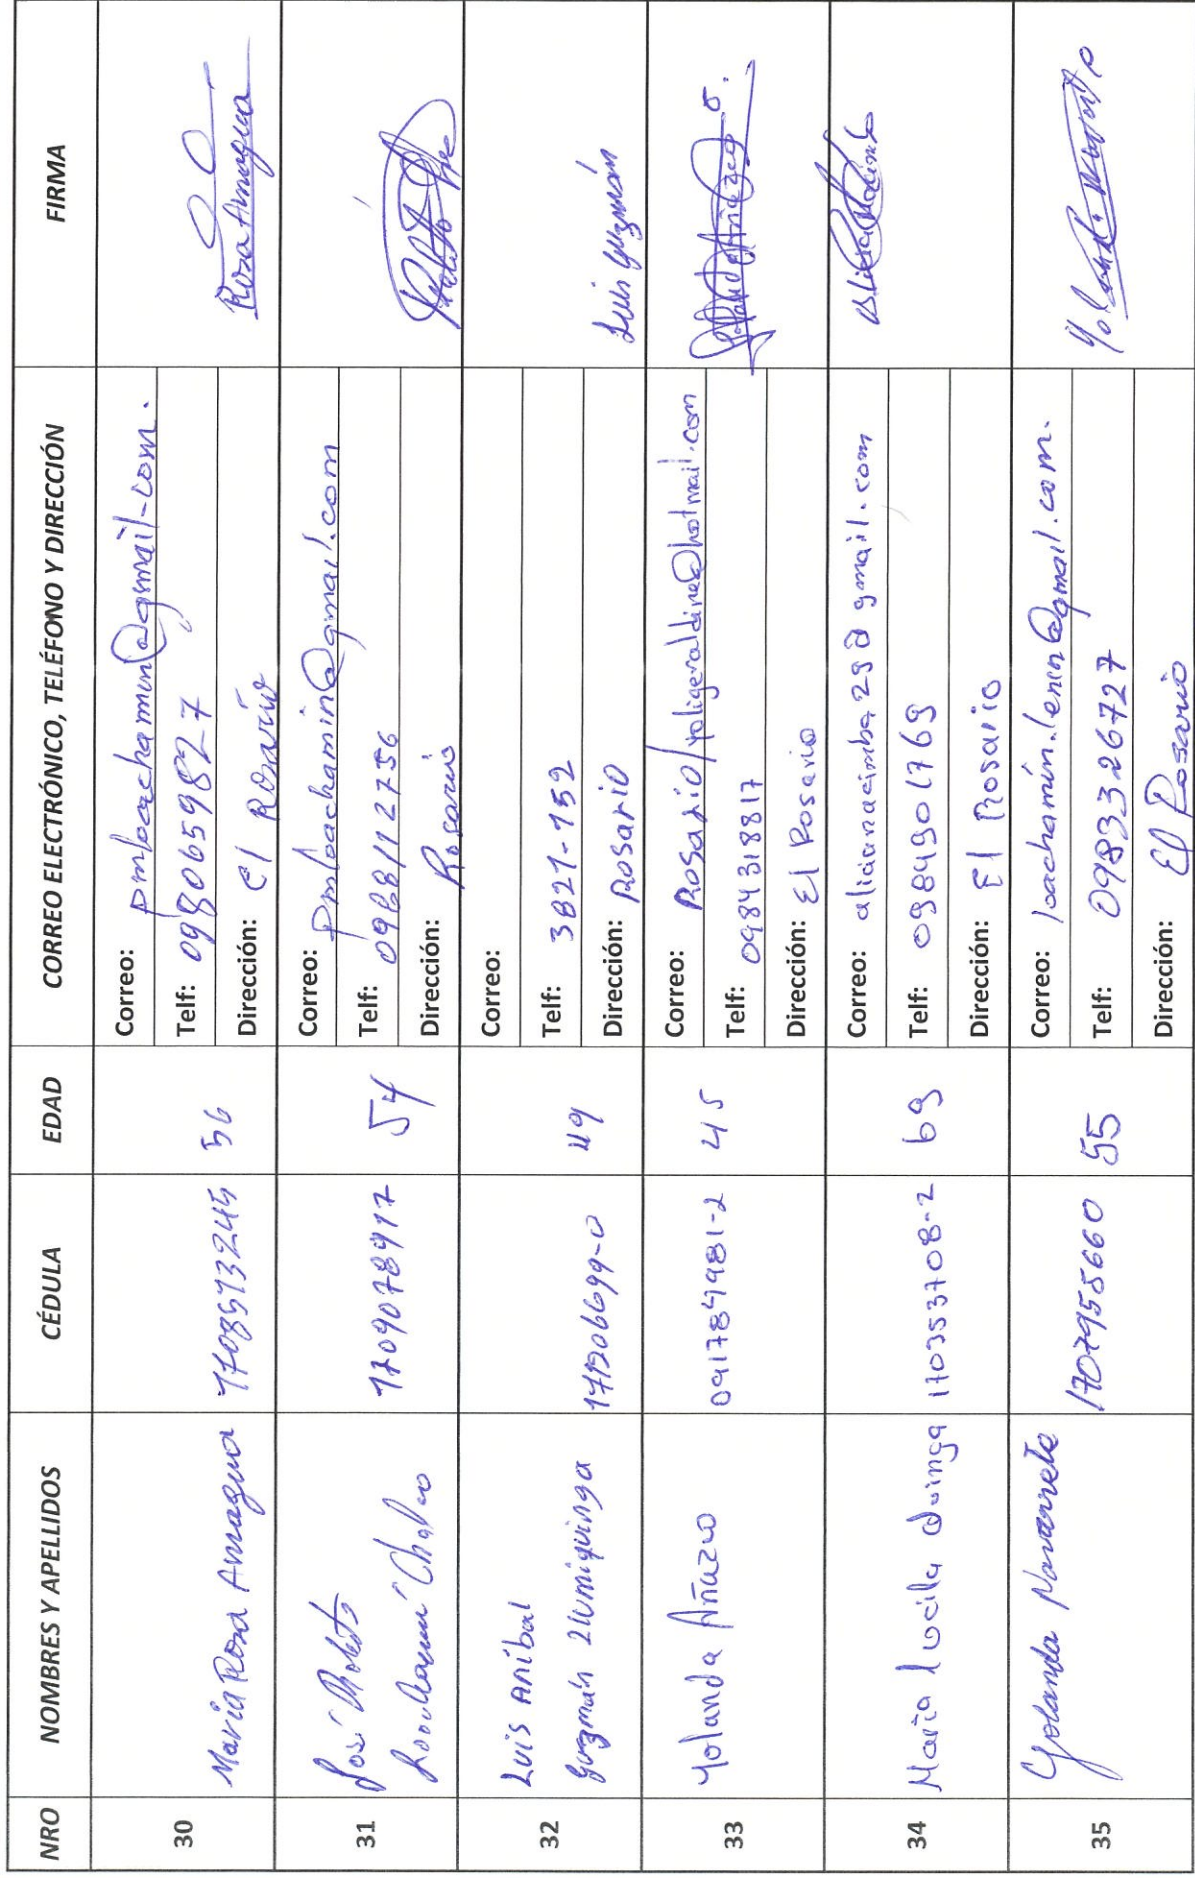 NRO NOMBRES Y APELLIDOS CÉDULA EDAD CORREO ELECTRÓNICO, TELÉFONO Y DIRECCIÓN FIRMA
30 Maria Rosa Amagua 1708573245 56
Correo: pmloachamin@gmail-com.
Telf: 0980659827
Dirección: El Rosario
Rosa Amagua
31 José Roberto
Loachamín 1709078917 54
Correo: pmloachamin@gmail.com
Telf: 0968112756
Dirección: Rosario
32 Luis Aníbal
Guzmán 171206699-0 49
Correo:
Telf: 3821-152
Dirección: Rosario
Luis Guzmán
33 Yolanda Añazco 091784981-2 45
Correo: Rosario/yoligeraldine@hotmail.com
Telf: 0984318817
Dirección: El Rosario
34 María Lucila Quinga 170353708-2 69
Correo: alicianacimba29@gmail.com
Telf: 0984901769
Dirección: El Rosario
35 Yolanda Navarrete 1707955660 55
Correo: loachamín.lenin@gmail.com.
Telf: 0983326727
Dirección: El Rosario
Yolanda